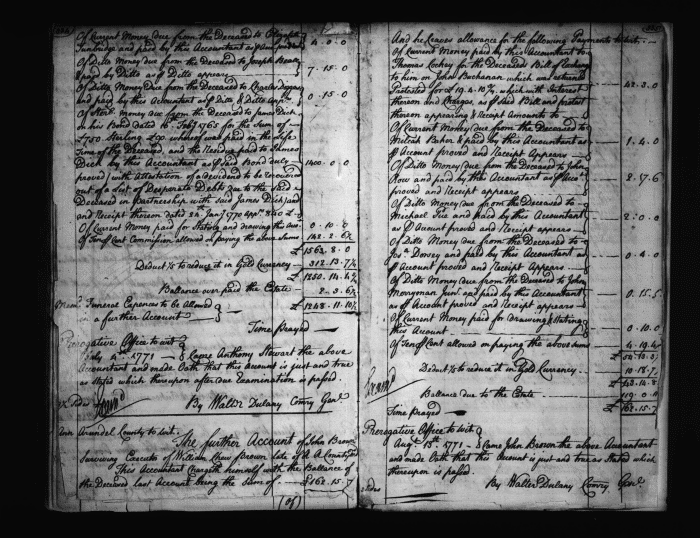 Of Current Money due from the Deceased to Elizabeth
Sunbridge and paid by this Accountant as & Accot proved 4 . 0 . 0
Of Ditto Money due from the Deceased to Joseph
& paid by Ditto as & Ditto appears 7 . 15 . 0
Of Ditto Money Due from the Deceased to Charles
and paid by this Accountant as & Ditto & Ditto appr. 0 . 15 . 0
Of Sterl. Money due from the Deceased to James Dick
on his Bond dated 10 Feby 1765 for the Sum of
£750 Sterling &c. whereof was paid in the Life
Time of the Deceased, and the Residue paid to James
Dick by this Accountant as & said Bond duly
proved (with Attestation of a Dividend to be received
out of a List of Desperate Debts due to the said
Deceased in Partnership with said James Dick) and
and Receipt thereon dated 24th Jany 1770 appr. 1400 . 0 . 0
Of Current Money paid for Stating and drawing this Acct. 0 . 10 . 0
Of Ten & Cent Commission allowed on paying the above Sums 142 . 2 . 6½
£ 1563 . 8 . 0
Deduct ⅕ to reduce it in Gold Currency 312 . 13 . 7½
£ 1250 . 14 . 4½
Ballance over paid the Estate 2 . 3 . 6½
Memo. Funeral Expences to be Allowed £ 1248 . 11 . 10½
in a further Account
Time Prayed
Prerogative Office to wit
July 4th 1771 Came Anthony Stewart the above
Accountant and made Oath that this Account is just and true
as stated which thereupon after due Examination is passed.
Examd By Walter Dulany Comry Genl.
Ann Arundel County to wit.
The further Account of John Brown
Surviving Executor of William Chew Brown late of A A County Decd
This Accountant Chargeth himself with the Ballance of
the Deceased last Account being the Sum of £162 . 15 . 7
(Of)
And he Craves allowance for the following Payments to wit.
Of Current Money paid by this Accountant to
Thomas Lockey for the Deceaseds Bill of
to him on John Buchanan which was returned
Protested for £19.4.10½, which with Interest
thereon and Charges, as & said Bill and protest
thereon appearing & Receipt Amounts to 42 . 3 . 0
Of Current Money due from the Deceased to
Baker & paid by this Accountant as
& Account proved and Receipt Appears 1 . 4 . 0
Of Ditto Money due from the Deceased to John
Row and paid by this Accountant as & Acct
proved and Receipt appears 2 . 17 . 6
Of Ditto Money due from the Deceased to
Michael Fie and paid by this Account
as & Account proved and Receipt appears 2 . 0 . 0
Of Ditto Money due from the Deceased to
Josa Dorsey and paid by this Accountant as
& Account proved and Receipt Appears 0 . 4 . 0
Of Ditto Money Due from the Deceased to John
Merryman Junr. and paid by this Accountant
as & Account proved and Receipt appears 0 . 15 . 5
Of Current Money paid for Drawing & Stating
this Account 0 . 10 . 0
Of Ten & Cent allowed on paying the above sums 4 . 19 . 4
£ 54 . 13 . 3
Deduct ⅕ to reduce it in Gold Currency 10 . 18 . 7
£ 43 . 14 . 8
Examd
Ballance due to the Estate 119 . 0 . 11
Time Prayed £ 162 . 15 . 7
Prerogative Office to wit
Augt 15th 1771 Came John Brown the above Accountant
and made Oath that this Account is just and true as Stated which
thereupon is passed.
By Walter Dulany Comry Genl.